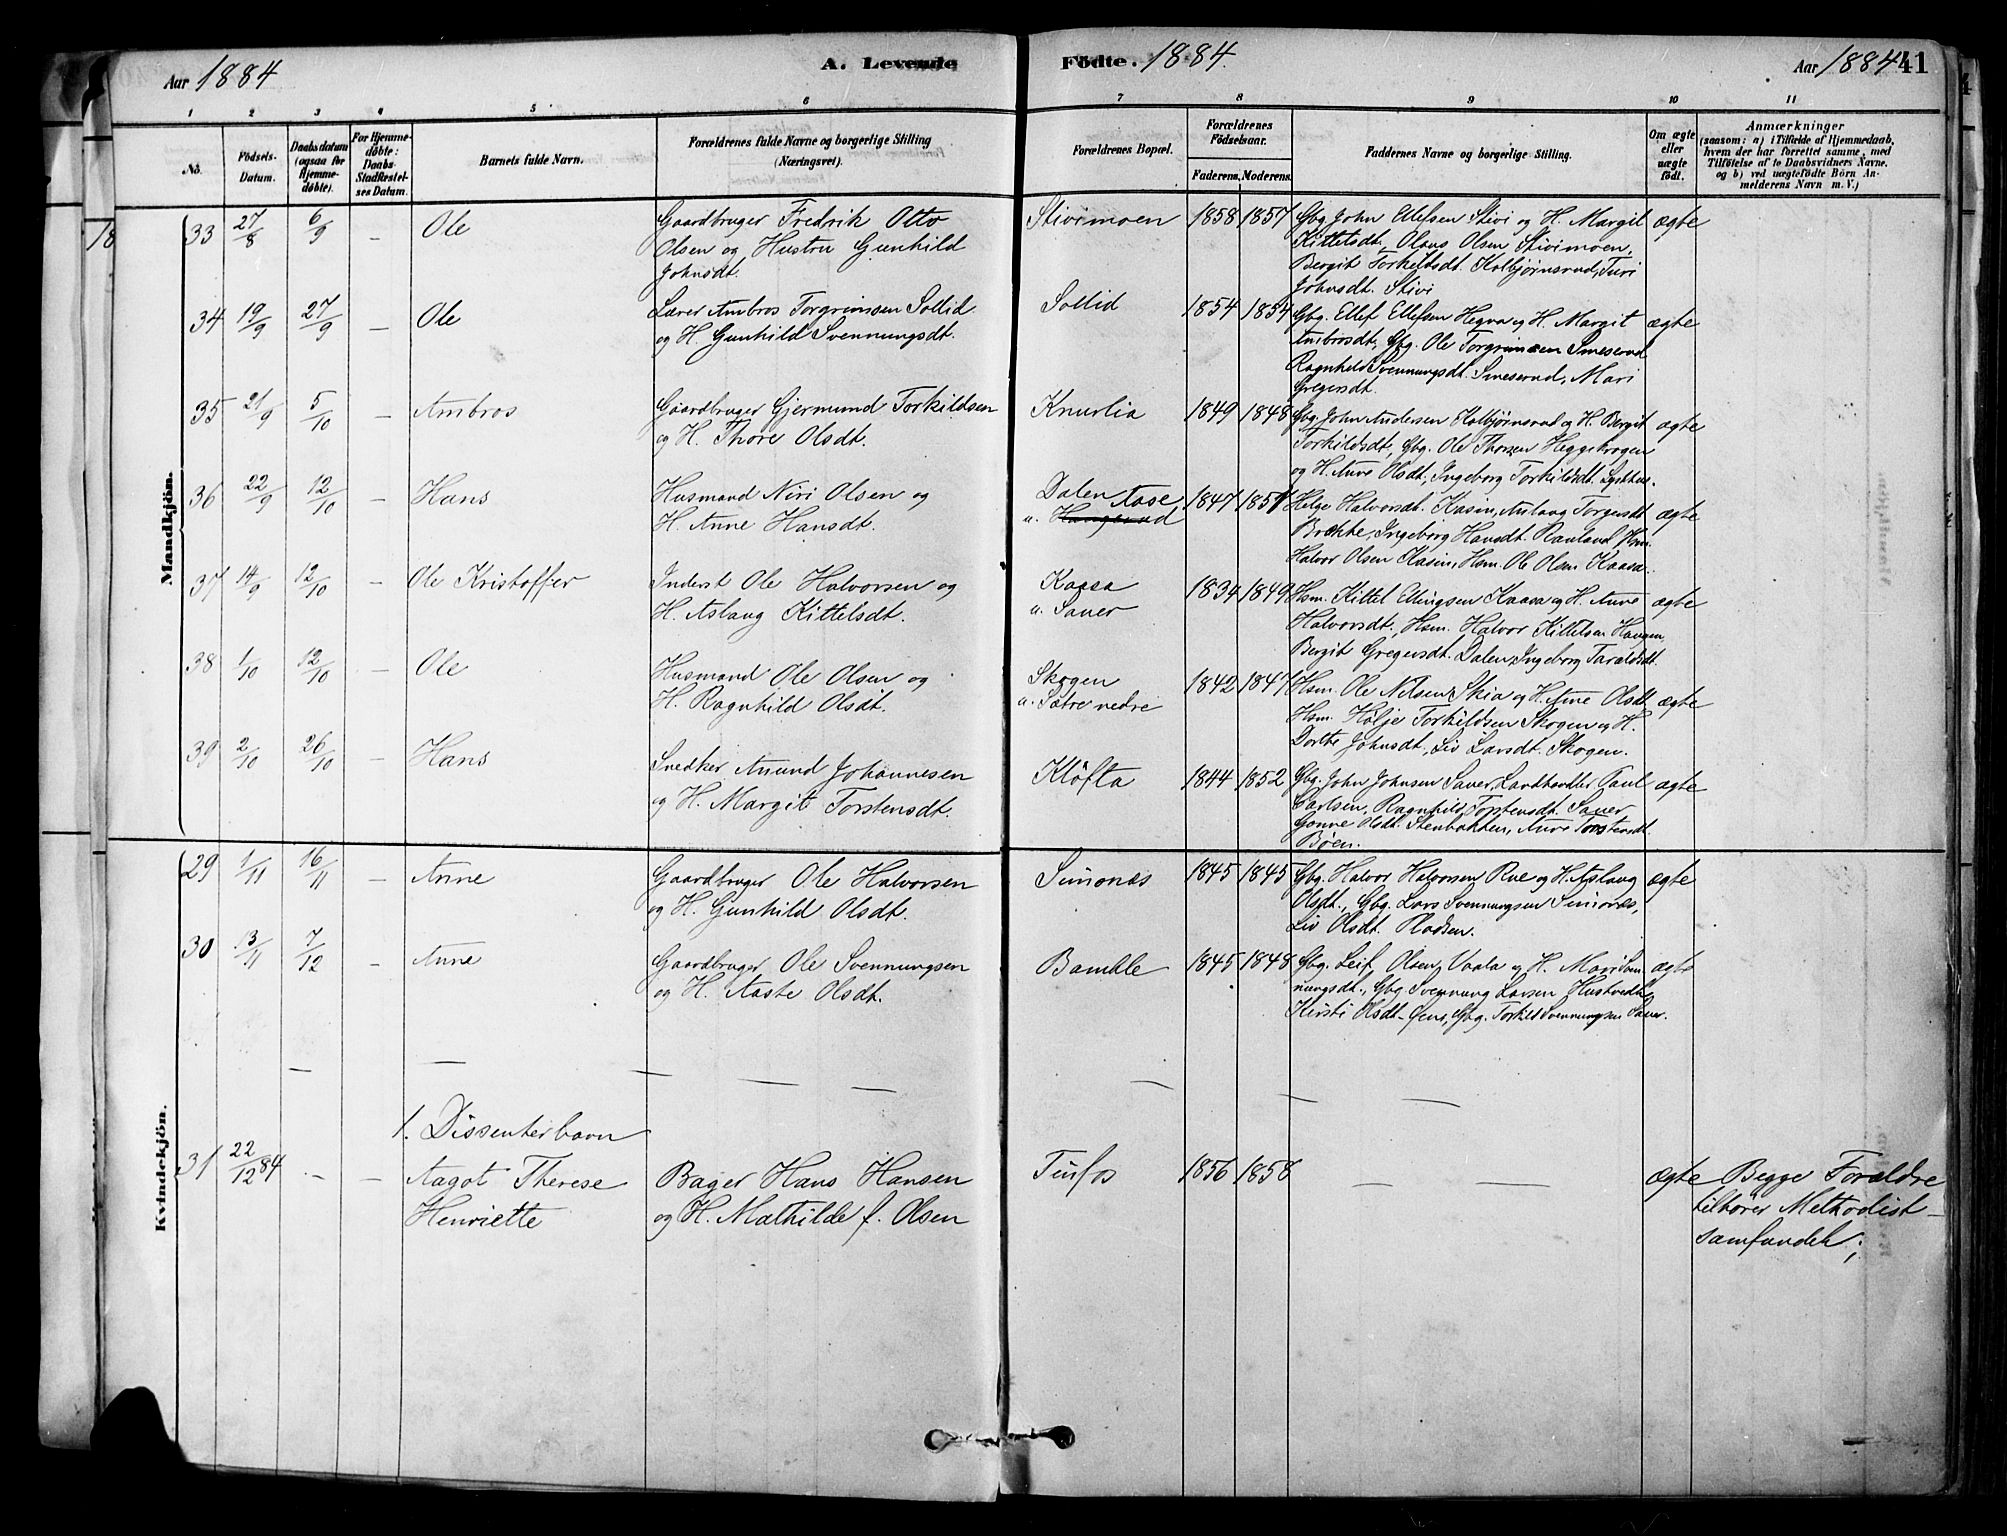 Aar 1884
A. Levende
Födte. 1884.
Aar 1884 41
1 2 3 4 5 6 7 8 9 10 11
No. Födsels-Datum. Daabsdatum (ogsaa for Hjemme-döbte). For Hjemme-döbte: Daabs-Stadfæstel-ses Datum. Barnets fulde Navn. Forældrenes fulde Navne og borgerlige Stilling (Næringsvei). Forældrenes Bopæl. Forældrenes Födselsaar. Faderens. Moderens. Faddernes Navne og borgerlige Stilling. Om ægte eller uægte födt.
Anmærkninger
(saasom: a) i Tilfælde af Hjemmedaab,
hvem der har forrettet samme, med
Tilföielse af to Daabsvidners Navne,
og b) ved uægtefödte Börn An-
melderens Navn m. V.)
18
Mandkjön.
33 27/8 6/9 – Ole
Gaardbruger Fredrik Otto
Olsen og Hustru Gunhild
Johnsdt.
Stivimoen 1858 1857
Gbg. John Ellefsen Stivi og H. Margit
Kittelsdt., Olaus Olsen Stivimoen,
Bergit Torkeltsdt. Kolbjørnsrud, Turi
Johnsdt. Stivi
ægte
34 19/9 27/9 – Ole
Lærer Ambros Torgrimsen Sollid
og H. Gunhild Svennungsdt.
Sollid 1854 1854
Gbg. Ellef Ellefsen Hegna og H. Margit
Ambrosdt., Gbg. Ole Torgrimsen Smeserud
Ragnhild Svennungsdt. Smeserud, Mari
Gregersdt.
ægte
35 21/9 5/10 – Ambros
Gaardbruger Gjermund Torkildsen
og H. Thore Olsdt.
Knurlia 1849 1848
Gbg. John Andersen Kolbjørnsrud og H. Bergit
Torkildsdt., Gbg. Ole Thorsen Heggekrogen
og H. Anne Olsdt., Ingeborg Torkildsdt.
ægte
36 22/9 12/10 – Hans
Husmand Niri Olsen og
H. Anne Hansdt.
Dalen
u. Tase
1847 1851
Helge Halvorsdt. Kasin, Aslaug Torgersdt
Brekke, Ingeborg Hansdt. Rauland, Hsm.
Halvor Olsen Kasin, Hsm. Ole Olsen Kaasa.
ægte
37 14/9 12/10 – Ole Kristoffer
Inderst Ole Halvorsen og
H. Aslaug Kittelsdt.
Kaasa
u. Sauer
1834 1849
Hsm. Kittel Ellingsen Kaasa og H. Anne
Halvorsdt., Hsm. Halvor Kittelsen Haugen,
Bergit Gregersdt. Dalen, Ingeborg Taraldsdt.
ægte
38 1/10 12/10 – Ole
Husmand Ole Olsen og
H. Ragnhild Olsdt.
Skogen
u. Sætre nedre
1842 1847
Hsm. Ole Nilsen Skia og H. Anne Olsdt.
Hsm. Hølje Torkildsen Skogen og H.
Dorthe Johnsdt., Liv Larsdt. Skogen.
ægte
39 2/10 26/10 – Hans
Snedker Amund Johannesen
og H. Margit Torstensdt.
Kløfta 1844 1852
Gbg. John Johnsen Sauer, Landhandler Paul
Carlsen, Ragnhild Torstensdt. Sauer
Gonne Olsdt. Stenbakken, Anne Torstensdt.
Bøen.
ægte
Kvindekjön.
29 1/11 16/11 – Anne
Gaardbruger Ole Halvorsen
og H. Gunhild Olsdt.
Simonæs 1845 1845
Gbg. Halvor Halvorsen Rue og H. Aslaug
Olsdt., Gbg. Lars Svennungsen Simonæs,
Liv Olsdt.
ægte
30 13/11 7/12 – Anne
Gaardbruger Ole Svennungsen
og H. Aaste Olsdt.
Bamble 1845 1848
Gbg. Leif Olsen Vaala og H. Mari Sven-
nungsdt., Gbg. Svennung Larsen Hustvedt,
Kirsti Olsdt., Gbg. Torkild Svennungsen Sauer.
ægte
1. Dissenterbarn
31 22/12 84 – – Aagot Therese
Henriette
Bager Hans Hansen
og H. Mathilde f. Olsen
Tinfos 1856 1858 – – ægte
Begge Forældre
tilhører Methodist-
samfundet;